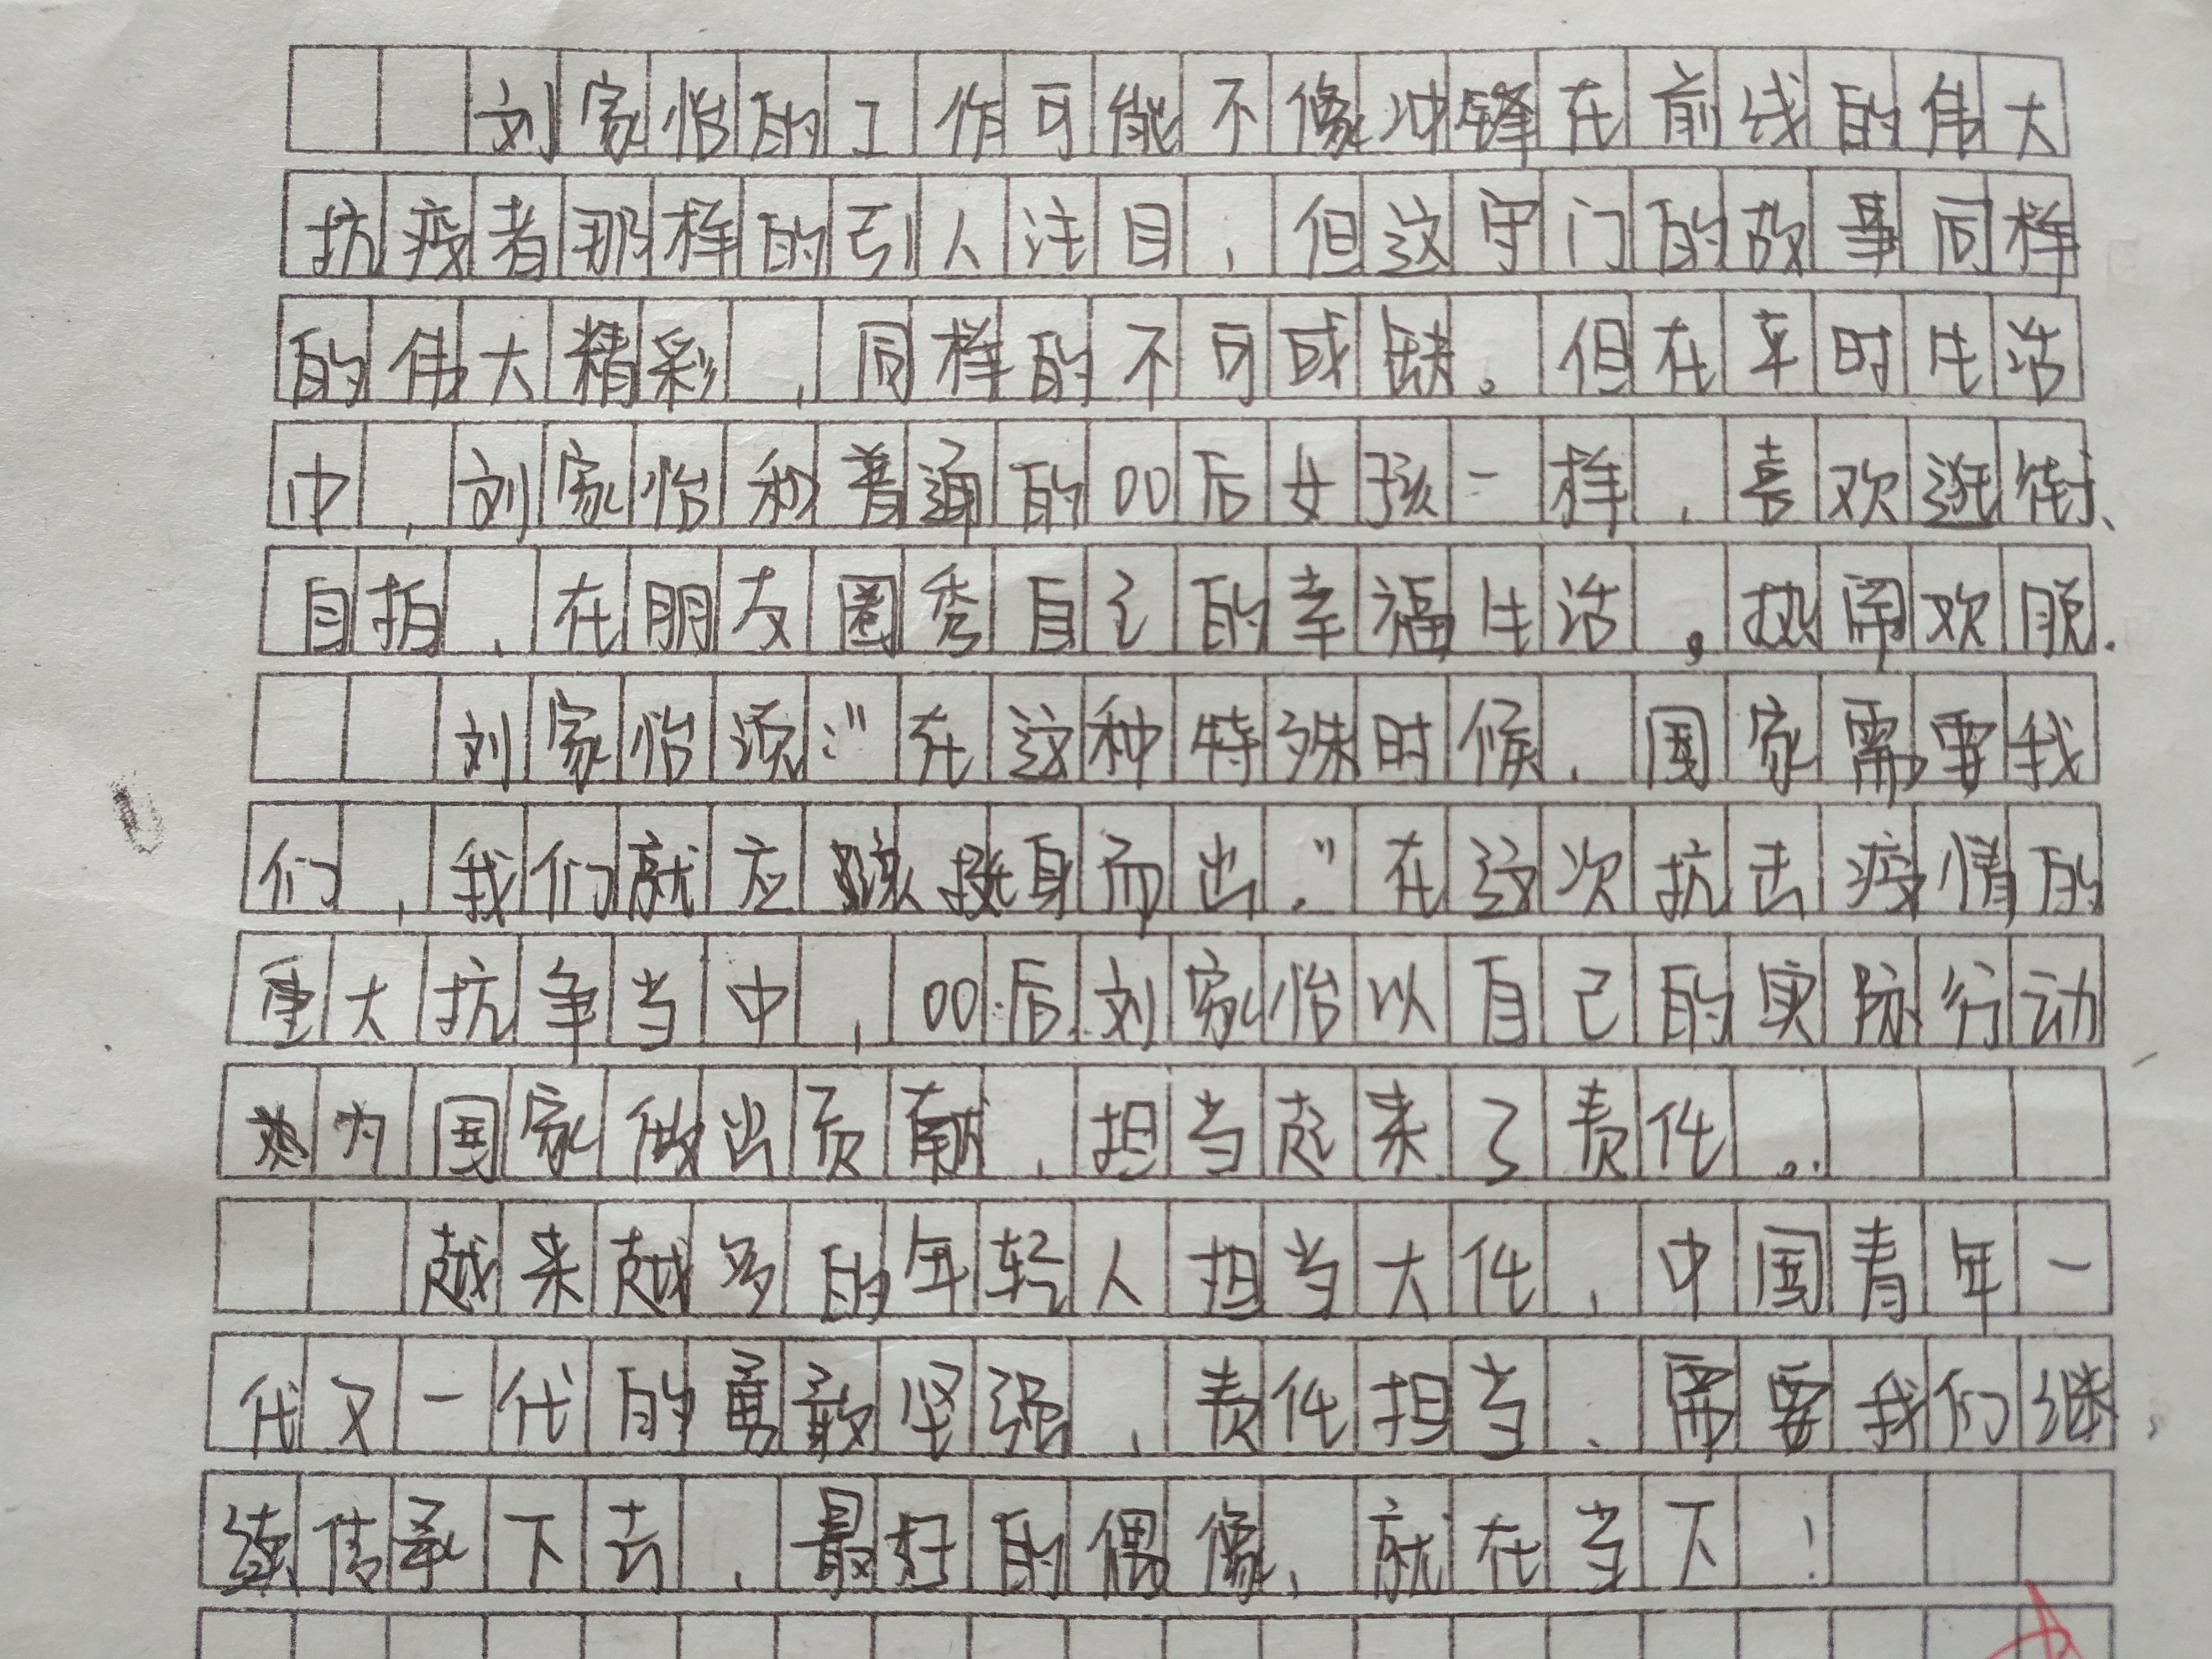 刘家怡的工作可能不像冲锋在前线的伟大
抗疫者那样的引人注目,但这守门的故事同样
的伟大精彩,同样的不可或缺。但在平时生活
中,刘家怡和普通的00后女孩一样,喜欢逛街、
自拍,在朋友圈秀自己的幸福生活。热闹欢脱.
刘家怡须:"在这种特殊时候,国家需要我
们,我们就应该挺身而出."在这次抗击疫情的
重大抗争当中,00后刘家怡以自己的实际行动
为国家做出贡献,担当起来了责任。
越来越多的年轻人担当大任,中国青年一
代又一代的勇敢坚强,责任担当、需要我们继
续传承下去,最好的偶像,就在当下!